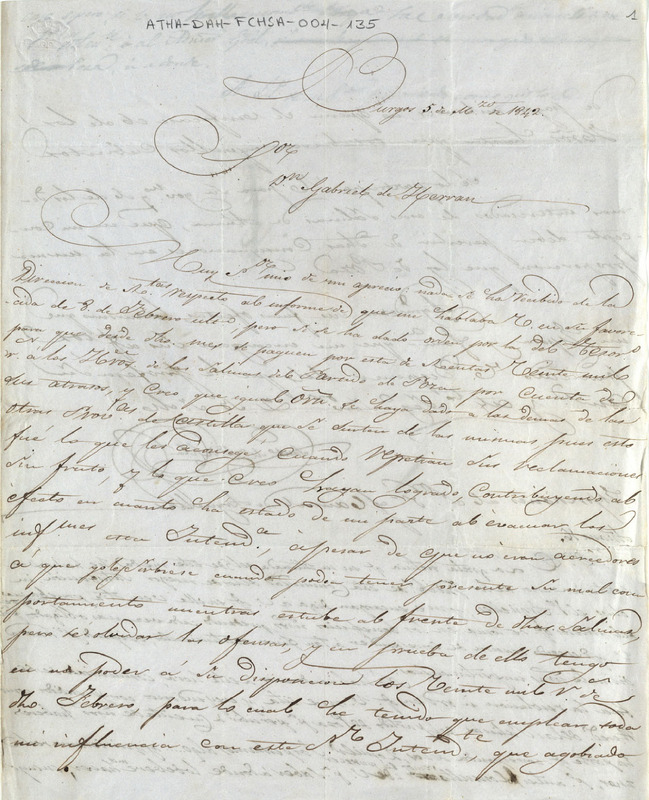 ATHA-DAH-FCHSA-004-135
1
Burgos 5 de Mzo de 1842.
Sor
Dn Gabriel de Herran
Muy Sr mio de mi aprecio, nada se ha recibido de la
Direccion de Rtas respeto al informe de que me hablaba V. en su favore
cida de 8 de Febrero ultº pero si se ha dado orden por la del Tesorº
para que desde dho mes se paguen por esta de Rentas Veinte mil
rs a los Hros de las Salinas del Partido de Poza por cuenta de
sus atrasos, y creo que igual Orn se haya dado a las demas de las
otras Provas de Castilla que se surten de las mismas pues esto
fué lo que les aconsege cuando repetian sus reclamaciones
sin fruto, y lo que creo hayan logrado, contribuyendo al
efecto en cuanto ha estado de mi parte al evacuar los
infmes esta Intenda, apesar de que no eran acreedores
á que yo les sirbiese cuando podia tener presente su mal com
portamiento mientras estube al frente de dhas Salinas,
pero se olvidar las ofensas, y en prueba de ello tengo
en mi poder á su disposicion los Veinte mil rs de
dho Febrero, para lo cual he tenido que emplear toda
mi influencia con este Sr Intendte que agobiado